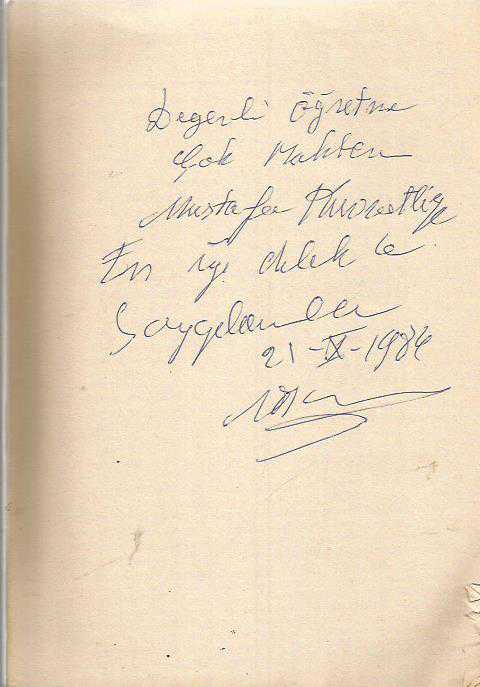 Değerli öğretme
Çok Muhterem
Mustafa
En iyi dilek le
Saygılarımla
21-IX-1986